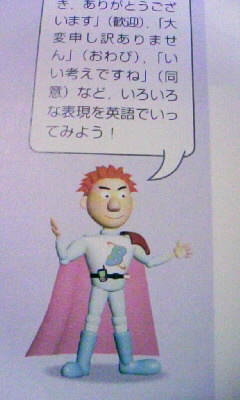 き、ありがとうござ
います」(歓迎)、「大
変申し訳ありませ
ん」(おわび)、「い
い考えですね」(同
意)など、いろいろ
な表現を英語でいっ
てみよう!